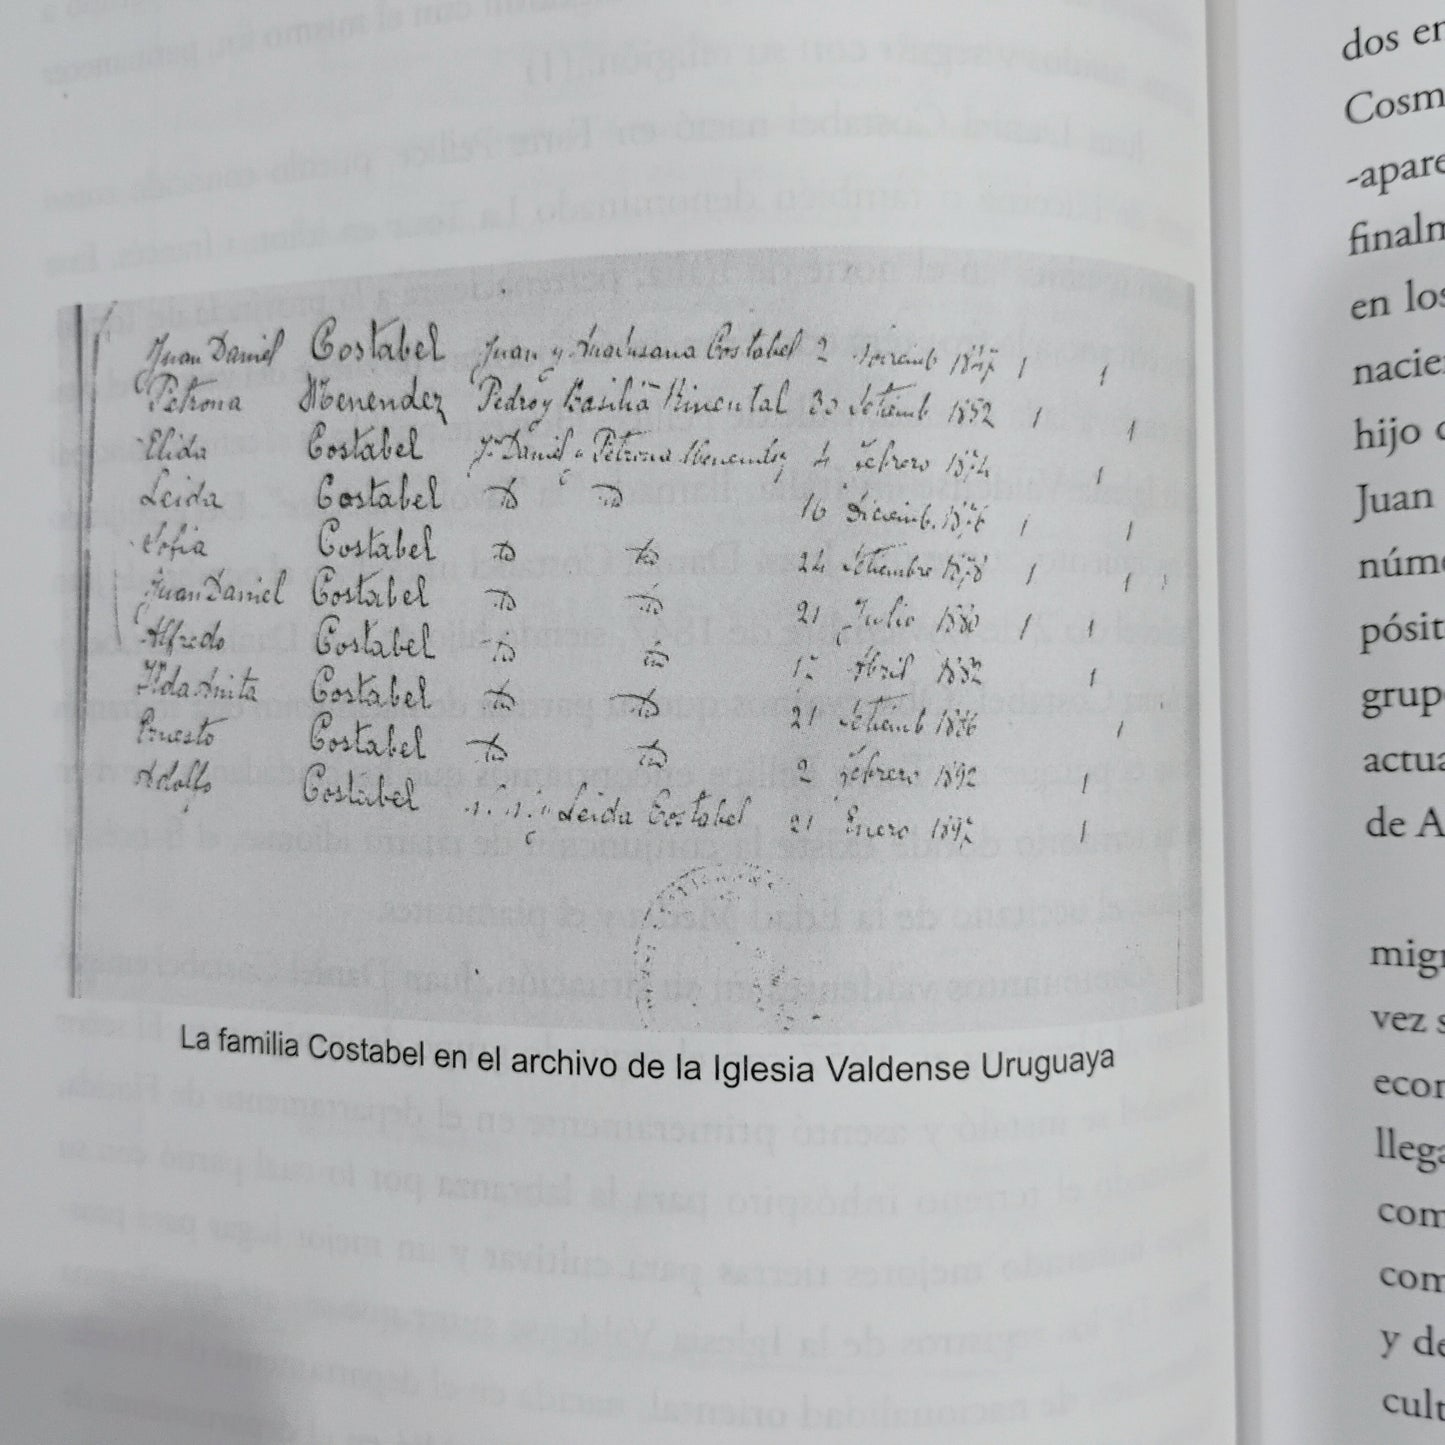 Juan Daniel Costabel Juan y Costabel 2 1847
Petrona Menendez Pedro y Basilia Rimental 30 Setiemb 1852
Elida Costabel Jn Daniel y Petrona Menendez 4 Febrero 1874
Leida Costabel 16 Diciemb. 1876
Sofia Costabel 24 Setiembre 1878
Juan Daniel Costabel 21 Julio 1880
Alfredo Costabel Abril 1882
Anita Costabel 21 Setiemb 1886
Ernesto Costabel 2 Febrero 1892
Adolfo Costabel Leida Costabel 21 Enero
La familia Costabel en el archivo de la Iglesia Valdense Uruguaya
dos en
Cosm
-apare
finalm
en los
nacie
hijo
Juan
núme
pósit
grup
actua
de A
migr
vez s
econ
llega
com
com
y de
cult